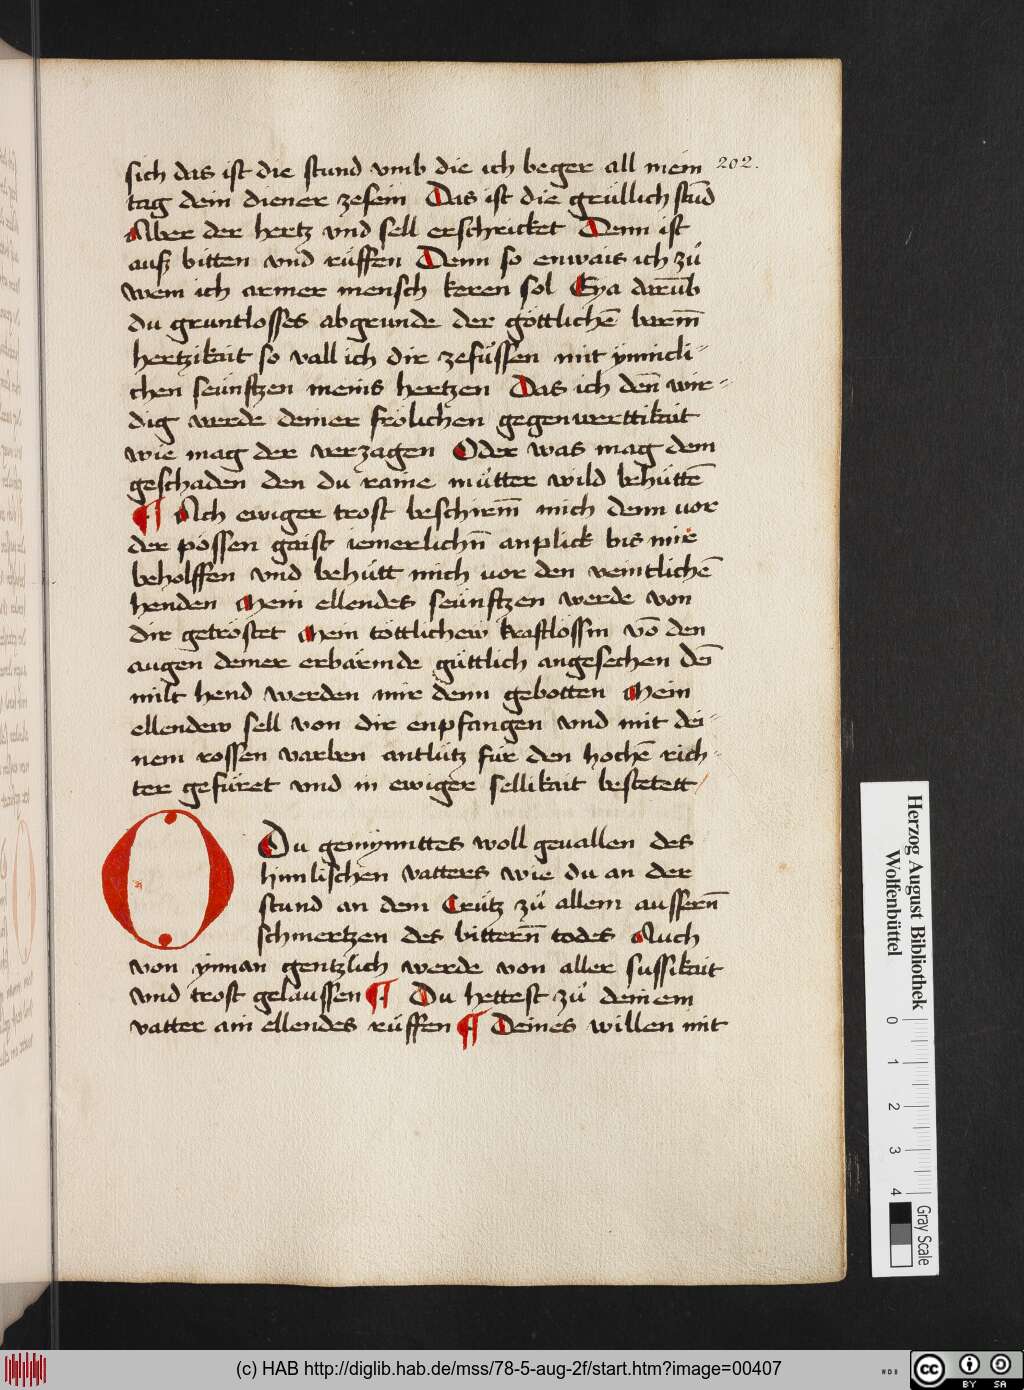 sich das ist die stund vmb die ich beger all mein 202.
tag dein diener zesein Das ist die grüllich stūd
Aber der hertz vnd sell erschricket Denn ist
ausz bitten vnd rüffen Denn so enwais ich zů
wem ich armer mensch keren sol Eya darūb
du gruntlosses abgrunde der göttlichē barm̄
hertzikait so vall ich dir zefüssen mit ynnicli-
chen seünftzen meins hertzen Das ich den̄ wir-
dig werde deiner frölichen gegenwerttikait
wie mag der verzagen Oder was mag dem
geschaden den du raine můtter wild behüttē
¶ Ach ewiger trost beschirm̄ mich denn vor
der pössen gaist iemerlichn̄ anplick bis mir
beholffen vnd behütt mich vor den veintlichē
henden Mein ellendes seünftzen werde von
dir getröstet Mein töttlichew kraftlössin vō den
augen deiner erbärmde güttlich angesechen dei
milt hend werden mir denn gebotten Mein
ellendew sell von dir enpfangen vnd mit dei-
nem rossen varben antlütz für den hochē rich-
ter gefüret vnd in ewiger sellikait bestetett
O Du gemynnttes woll geuallen des
himlischen vatters wie du an der
stund an dem Crütz zů allem aussern̄
schmertzen des bittern̄ todes Auch
von ynnan gentzlich werde von aller sussikait
vnd trost gelaussen ¶ Du hettest zů deinem
vatter ain ellendes rüffen ¶ Deines willen mit
Herzog August Bibliothek
Wolfenbüttel
0 1 2 3 4
Gray Scale
(c) HAB http://diglib.hab.de/mss/78-5-aug-2f/start.htm?image=00407
WDB
cc BY SA